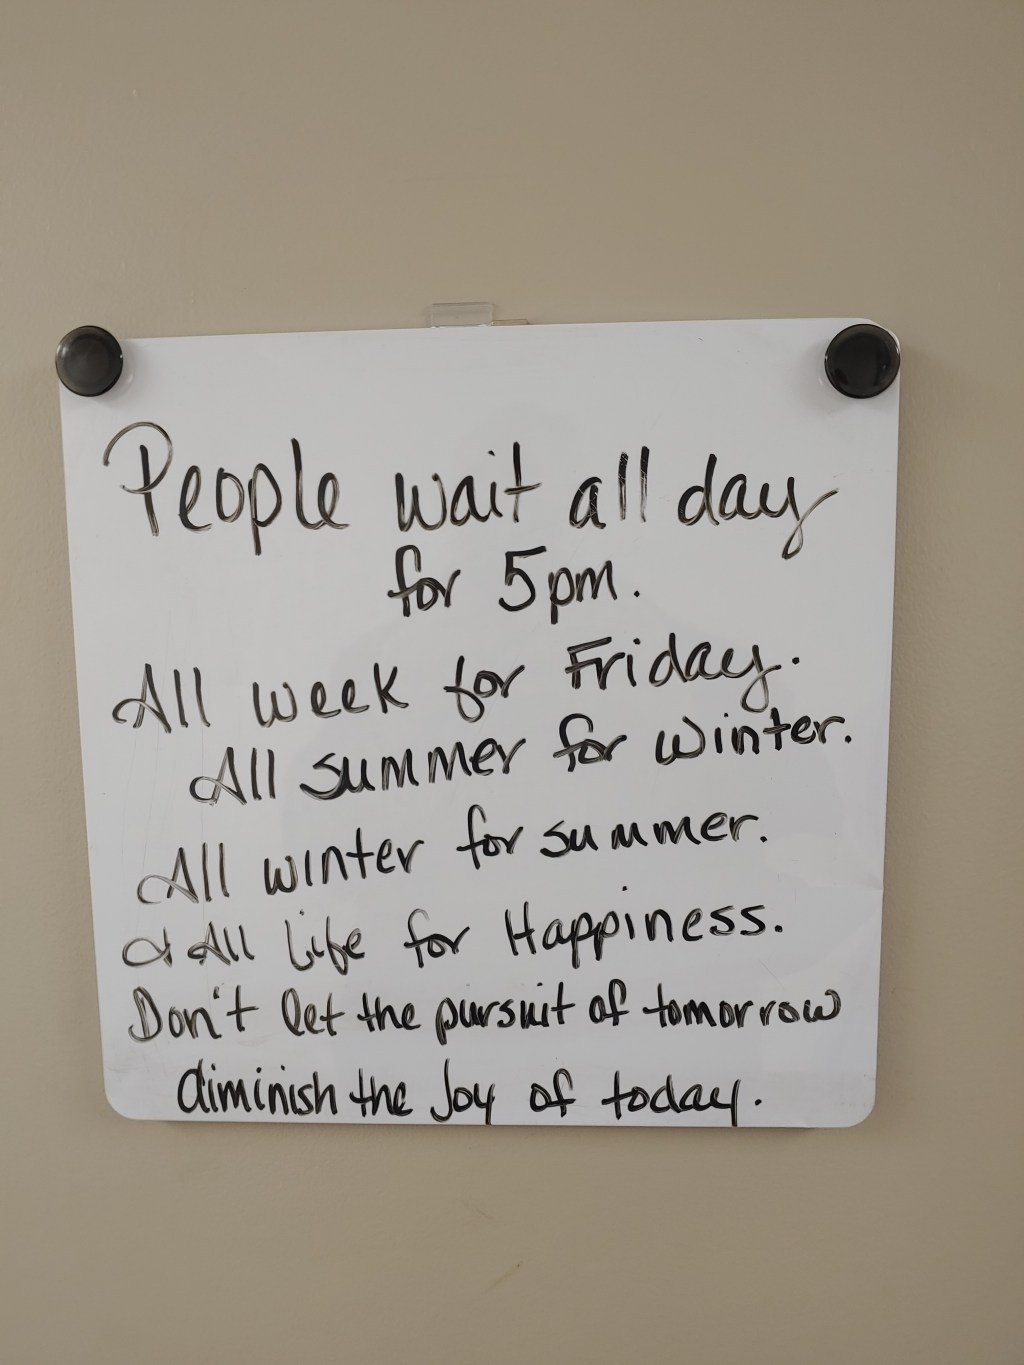 People wait all day
for 5pm.
All week for Friday.
All summer for winter.
All winter for summer.
& All Life for Happiness.
Don't let the pursuit of tomorrow
diminish the Joy of today.